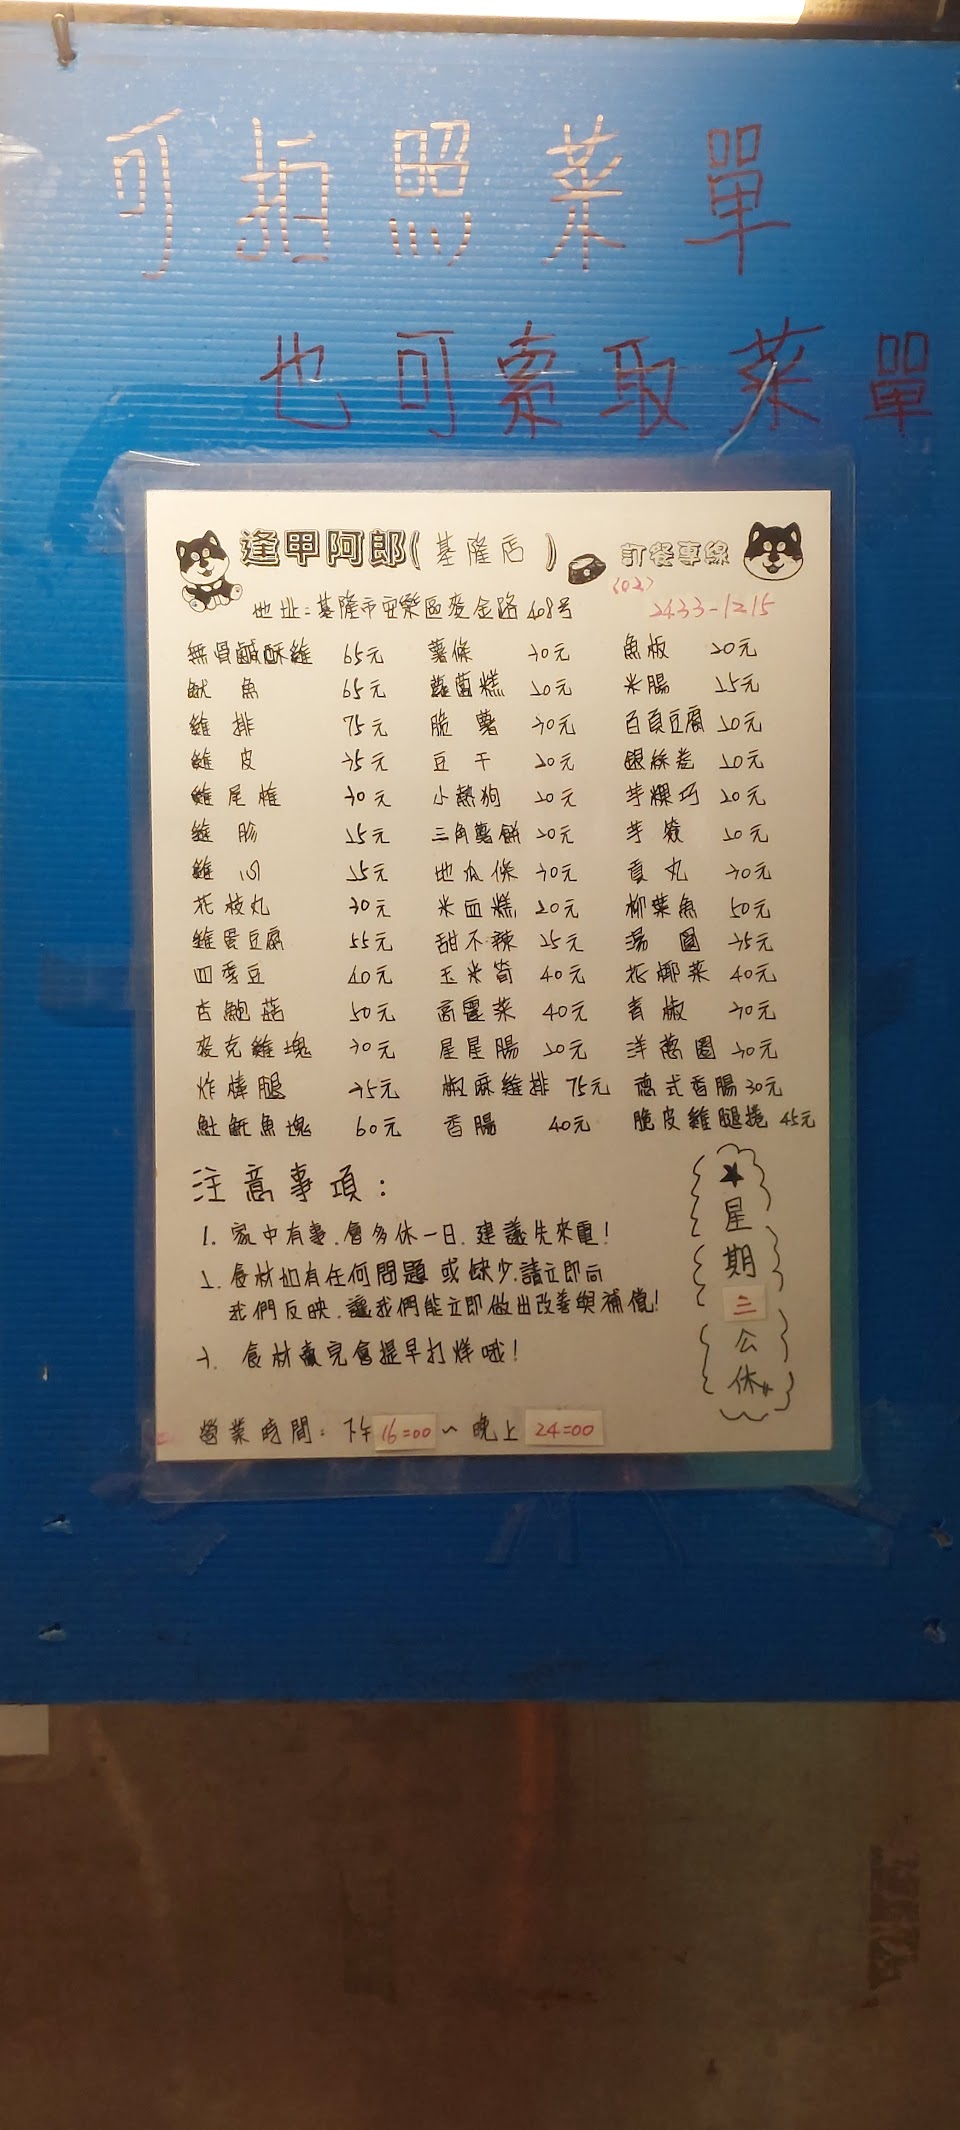 可拍照菜單
也可索取菜單
逢甲阿郎(基隆店) 訂餐專線
(02)
地址:基隆市安樂區麥金路408号 2433-1215
無骨鹹酥雞 65元 薯條 30元 魚板 20元
魷魚 65元 蘿蔔糕 20元 米腸 25元
雞排 75元 脆薯 30元 百頁豆腐 20元
雞皮 35元 豆干 20元 銀絲卷 20元
雞尾椎 30元 小熱狗 20元 芋粿巧 20元
雞胗 25元 三角薯餅 20元 芋簽 20元
雞心 25元 地瓜條 30元 貢丸 30元
花枝丸 30元 米血糕 20元 柳葉魚 50元
雞蛋豆腐 55元 甜不辣 25元 湯圓 35元
四季豆 40元 玉米筍 40元 花椰菜 40元
杏鮑菇 50元 高麗菜 40元 青椒 30元
麥克雞塊 30元 星星腸 20元 洋蔥圈 30元
炸棒腿 35元 椒麻雞排 75元 德式香腸 30元
魠魠魚塊 60元 香腸 40元 脆皮雞腿捲 45元
注意事項:
1. 家中有事.會多休一日.建議先來電!
2. 食材如有任何問題或缺少.請立即向
我們反映.讓我們能立即做出改善與補償!
3. 食材賣完會提早打烊哦!
★星期三公休
營業時間: 下午16:00~晚上24:00